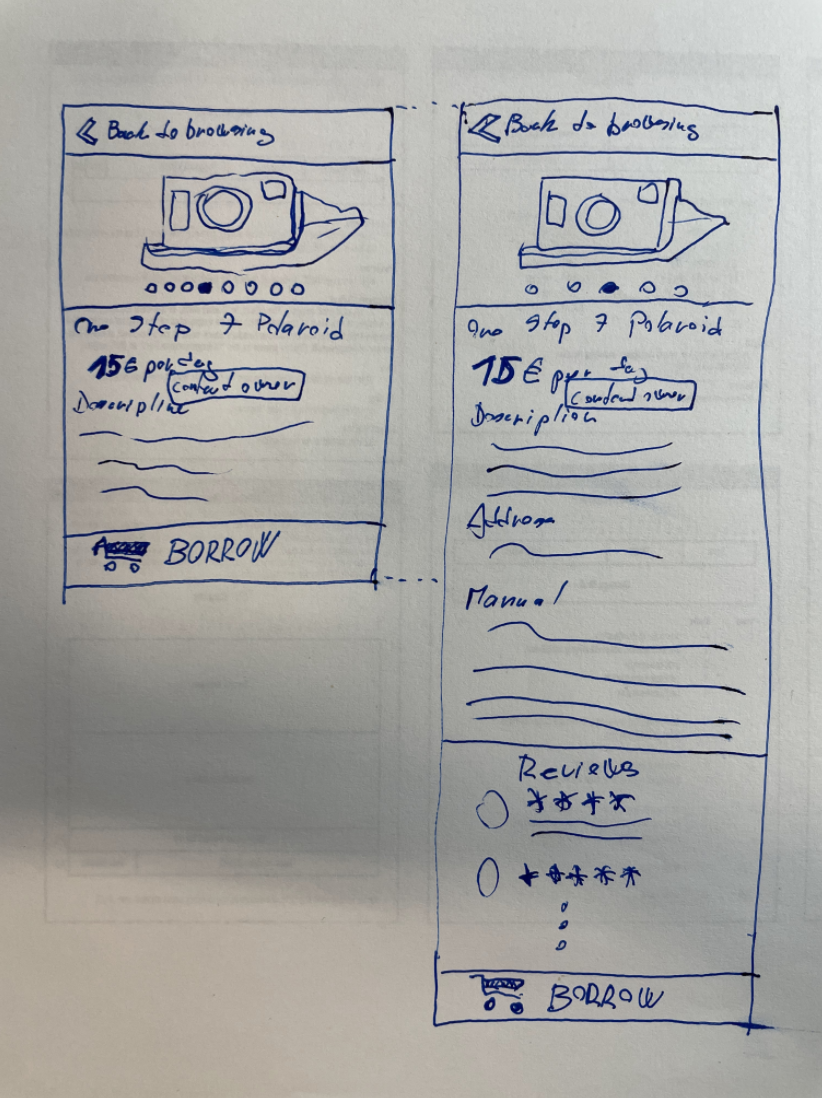 Back to browsing
One Step 7 Polaroid
15€ per day
Contact owner
Description
BORROW
Back to browsing
One Step 7 Polaroid
15€ per day
Contact owner
Description
Address
Manual
Reviews
BORROW